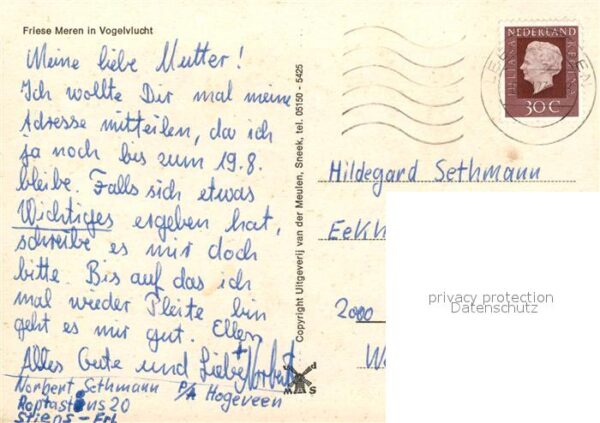 Friese Meren in Vogelvlucht
Meine liebe Mutter!
Ich wollte Dir mal meine
Adresse mitteilen, da ich
ja noch bis zum 19.8.
bleibe. Falls sich etwas
Wichtiges ergeben hat,
schreibe es mir doch
bitte. Bis auf das ich
mal wieder Pleite bin
geht es mir gut. Ellen
Alles Gute und Liebe + Norbert
Norbert Sethmann P/A Hogeveen
20
Stiens - Frl
Copyright Uitgeverij van der Meulen, Sneek, tel. 05150 - 5425
NEDERLAND
JULIANA REGINA
30 C
Hildegard Sethmann
EeKh
2000
privacy protection
Datenschutz